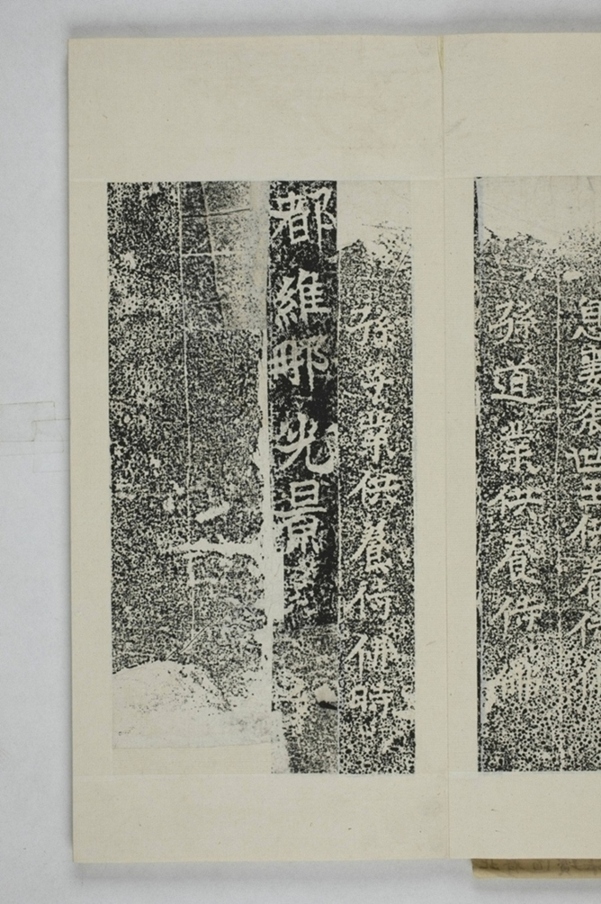 息襄張世王供養侍佛
孫道業供養侍佛
孫子業供養侍佛時
都維那光景